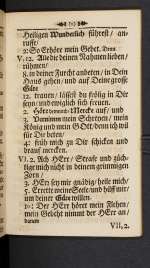 Heiligen Wunderlich führest/ an-
rufft/
2: So Erhöre mein Gebet.
V:12. Alle die deinen Nahmen lieben/
rühmen/
8. in deiner Furcht anbeten/ in Dein
Hauß gehen/ und auf Deine grosse
Güte
12. trauen/ lässest du frölig in Dir
seyn/ und ewiglich sich freuen.
2. Mercke auf/ und
3. Vernimm mein Schreyen/ mein
König und mein GOtt/ denn ich will
für Dir beten/
4. früh mich zu Dir schicken und
drauf mercken.
VI.2. Ach HErr/ Straffe und züch-
tige mich nicht in deinem grimmigen
Zorn/
3. HErr sey mir gnädig/ heile mich/
5. Errette meine Seele/ und hilff mir/
um deiner Güte willen.
10: Der HErr höret mein Flehen/
mein Gebeht nimmt der HErr an/
VII,2.